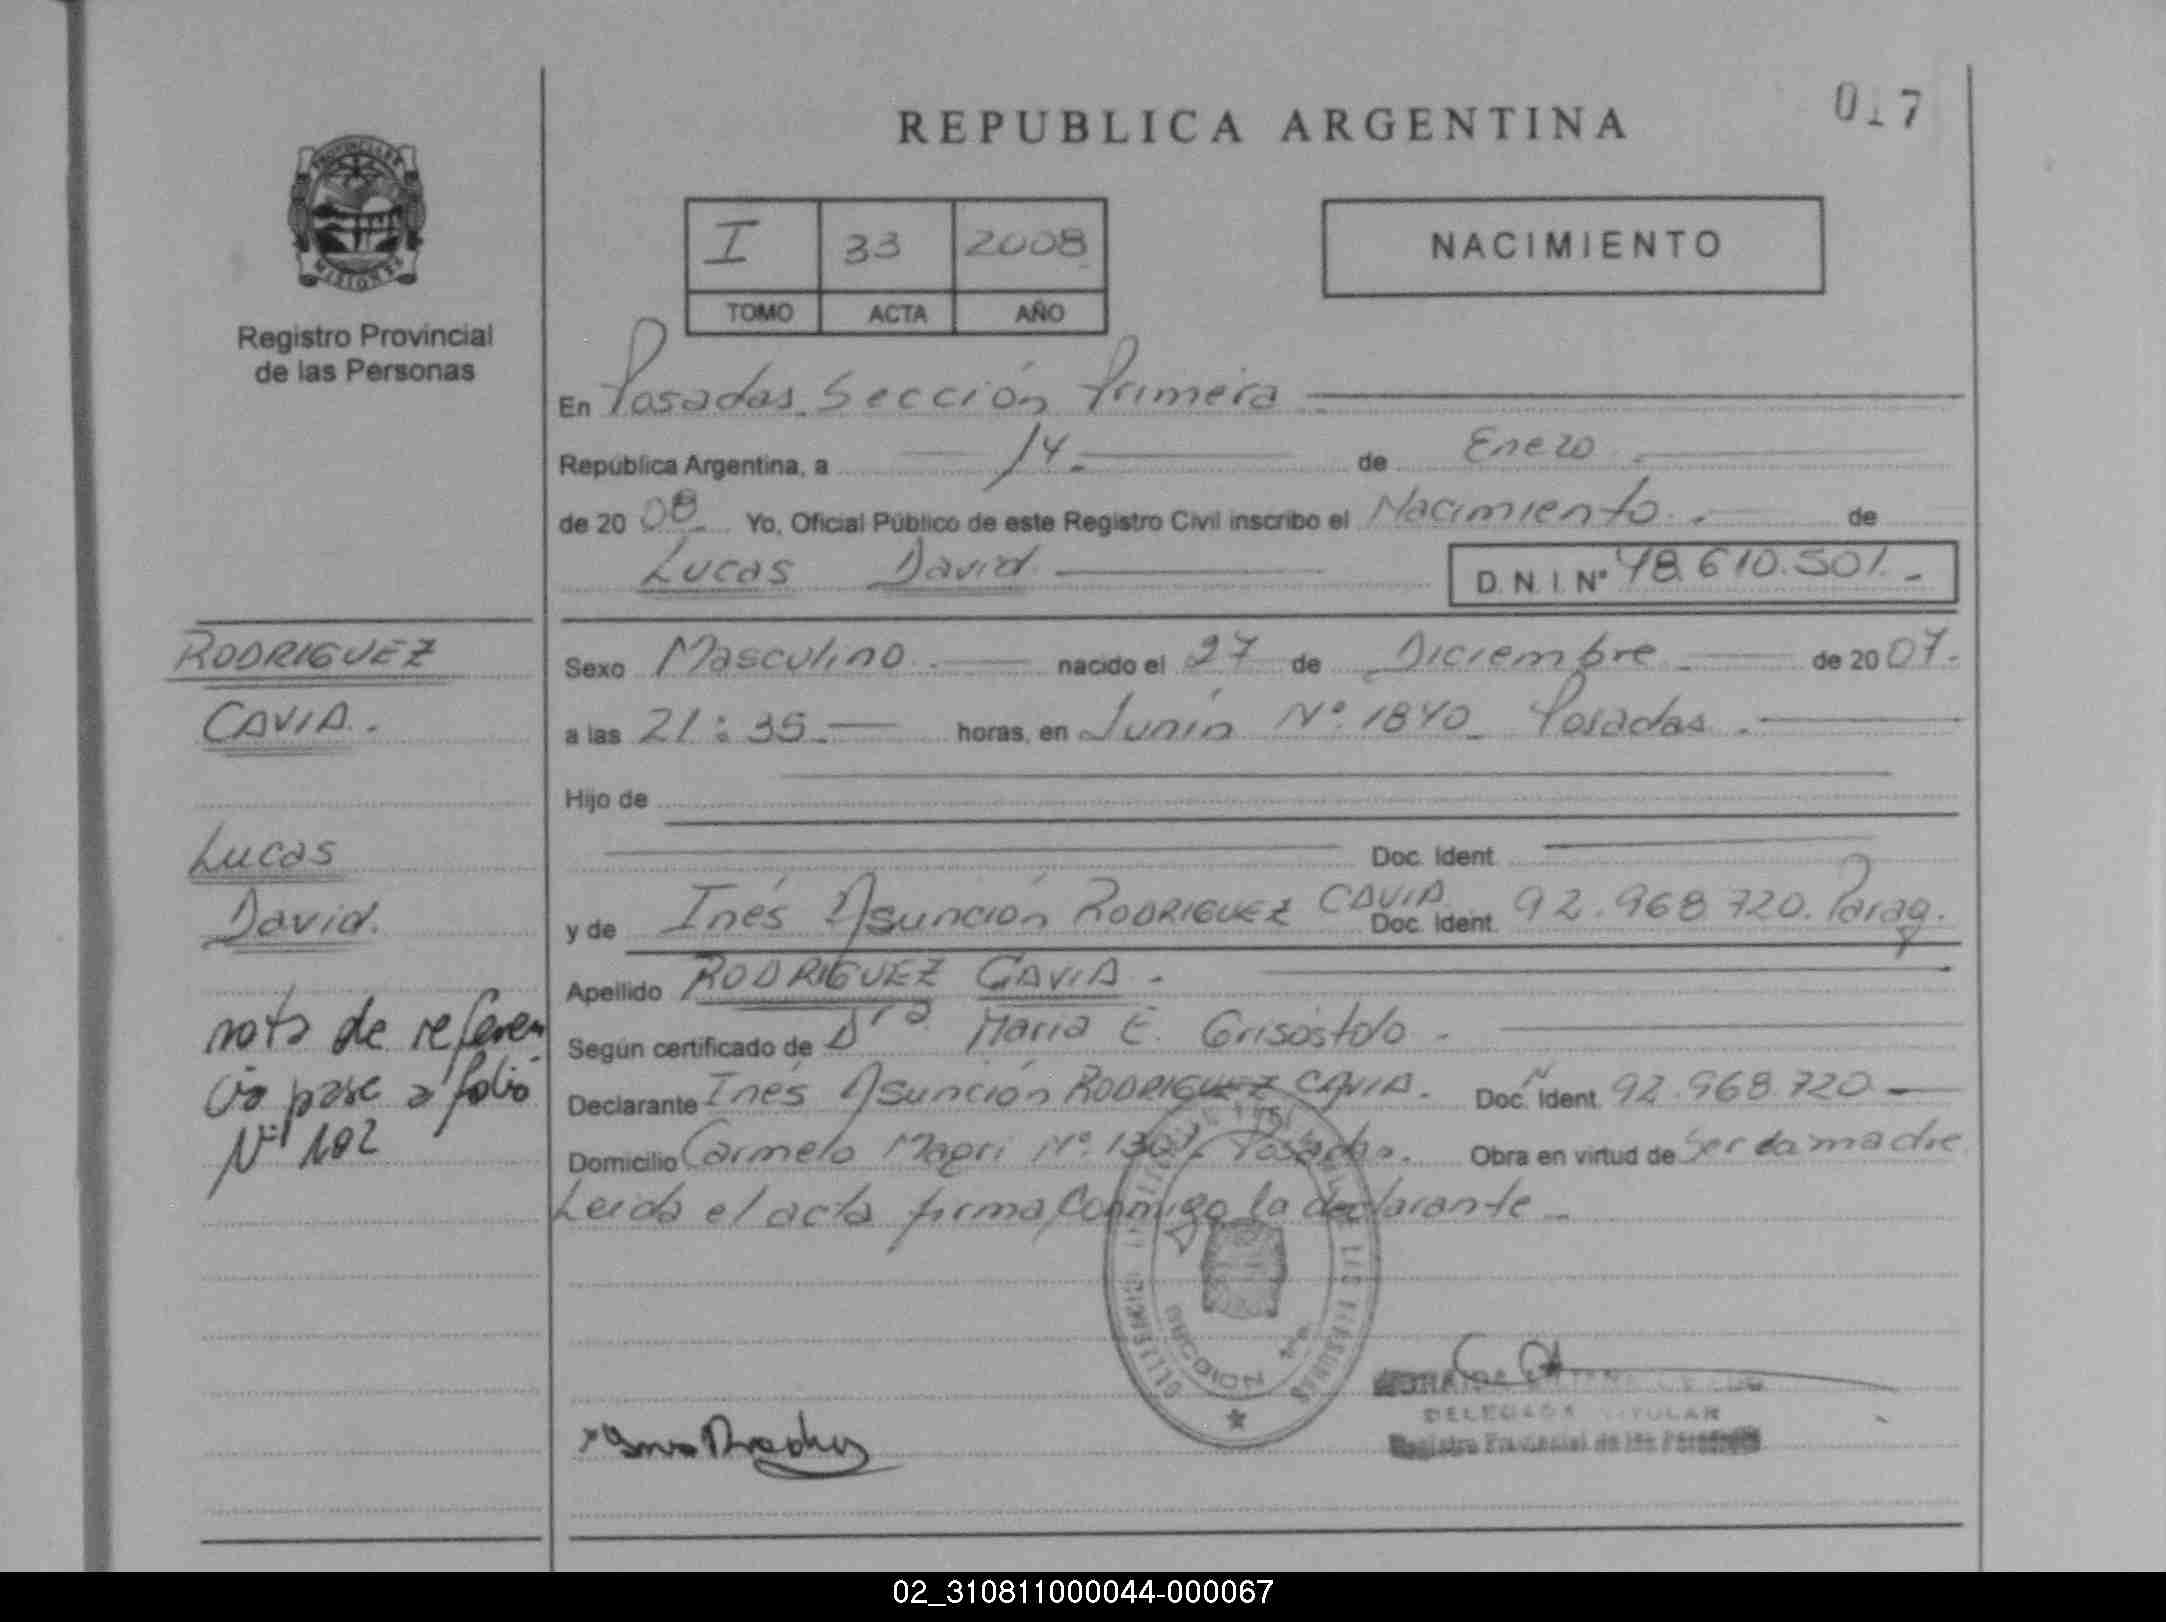 REPUBLICA ARGENTINA
017
PROVINCIA DE
MISIONES
Registro Provincial
de las Personas
I 33 2008
TOMO ACTA AÑO
NACIMIENTO
En Posadas Sección Primera
República Argentina, a 14 de Enero
de 20 08 Yo, Oficial Público de este Registro Civil inscribo el Nacimiento. de
Lucas David D. N. I. Nº 48.610.501.-
RODRIGUEZ
CAVIA.
Lucas
David.
nota de referen
cia pase a folio
Nº 102
Sexo Masculino.- nacido el 27 de Diciembre de 20 07.
a las 21:35.- horas, en Junín Nº 1840 Posadas.
Hijo de
Doc. Ident.
y de Inés Asunción RODRIGUEZ CAVIA Doc. Ident. 92.968.720. Parag.
Apellido RODRIGUEZ CAVIA.
Según certificado de Dra. Maria E. Grisóstolo.
Declarante Inés Asunción RODRIGUEZ CAVIA. Doc. Ident. 92.968.720
Domicilio Carmelo Magri Nº Posadas. Obra en virtud de Ser la madre
Leida el acta firma Conmigo la declarante
DELEGADA TITULAR
Registro Provincial de las Personas
02_310811000044-000067